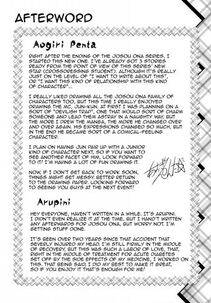 AFTERWORD
Aogiri Penta
RIGHT AFTER THE ENDING OF THE JOSOU ONA SERIES, I
STARTED THIS NEW ONE. I'VE ALREADY GOT 3 STORIES
READY FROM THE POINT OF VIEW OF THIS SERIES' NEW
STAR (CROSSDRESSING STUDENT). ALTHOUGH IT'S REALLY
JUST ON THE LEVEL OF "I WANT TO WRITE ABOUT THIS"
OR "I WANT THIS KIND OF RELATIONSHIP WITH THIS KIND
OF CHARACTER"...
I REALLY LIKED DRAWING ALL THE JOSOU ONA FAMILY OF
CHARACTERS TOO, BUT THIS TIME I REALLY ENJOYED
THE MC, JUN-KUN. AT FIRST I WAS PLANNING ON A
SORT OF "DEVILISH TRAP", ONE THAT WOULD SORT OF CHARM
SOMEONE AND LEAD THEM ASTRAY IN A NAUGHTY WAY, BUT
THE MORE I DREW THE MANGA, THE MORE HE CHANGED OVER
AND OVER AGAIN. HIS EXPRESSIONS CHANGED SO MUCH, BUT
IN THE END HE BECAME SORT OF A COMICAL-FEELING
CHARACTER.
I PLAN ON HAVING JUN PAIR UP WITH A JUNIOR
KIND OF CHARACTER NEXT, SO IF YOU WANT TO
SEE ANOTHER FACET OF HIM, LOOK FORWARD
TO IT! I'M HAVING A LOT OF FUN DRAWING IT.
NOW, IF I DON'T GET BACK TO WORK SOON,
THINGS MIGHT GET MESSY. BETTER RETURN
TO THE DRAWING PAPER. LOOKING FORWARD
TO SEEING YOU GUYS AT THE NEXT EVENT!
Arupini
HEY EVERYONE, HAVEN'T WRITTEN IN A WHILE. IT'S ARUPINI.
I DON'T EVEN REALIZE IT AT THE TIME, BUT I HADN'T WRITTEN
ANY AFTERWORDS FOR JOSOU ONA, BUT WORRY NOT, I'M
GETTING STUFF DONE.
IT'S BEEN OVER TWO YEARS SINCE THAT ACCIDENT THAT
SEVERELY INJURED MY HAND. I'M STILL FIRMLY IN THE MIDDLE
OF RECOVERY, BUT THIS WAS SUCH A LABOR OF LOVE, THAT,
RIGHT IN THE MIDDLE OF TREATMENT FOR ACUTE DIABETES
SET OFF BY THE SIDE EFFECTS OF MY MEDICINE, I WORKED ON
THIS. GREAT AND, I DID MY BEST TO MAKE IT GREAT,
SO IF YOU ENJOY IT THAT'S ENOUGH FOR ME!